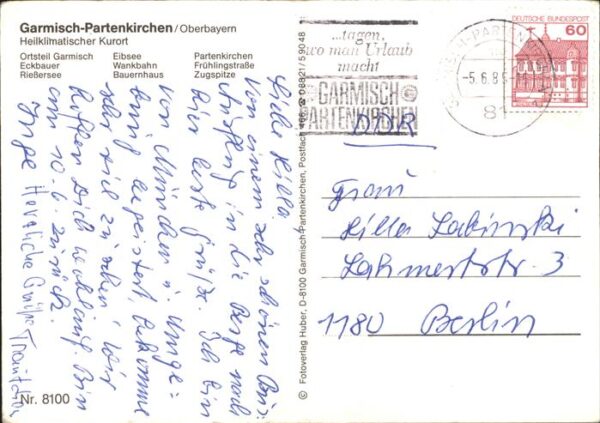 Garmisch-Partenkirchen/Oberbayern
Heilklimatischer Kurort
Ortsteil Garmisch Eibsee Partenkirchen
Eckbauer Wankbahn Frühlingstraße
Rießersee Bauernhaus Zugspitze
Liebe Hilla.
Von einem sehr schönen Aus=
flug in die Berge nach
hier liebe Grüße. Ich bin
von München u. Umge=
bung begeistert, bekomme
sehr viel zu sehen, wir
Dich bin
am 10.6. zurück.
Inge Herzliche Grüße
Nr. 8100
© Fotoverlag Huber, D-8100 Garmisch-Partenkirchen, Postfach 466, ☎ 08821/59048
...tagen,
wo man Urlaub
macht
GARMISCH
PARTENKIRCHEN
-5.6.8
81
DEUTSCHE BUNDESPOST
60
DDR
Frau
Hilla
Lahmertstr. 3
1180 Berlin